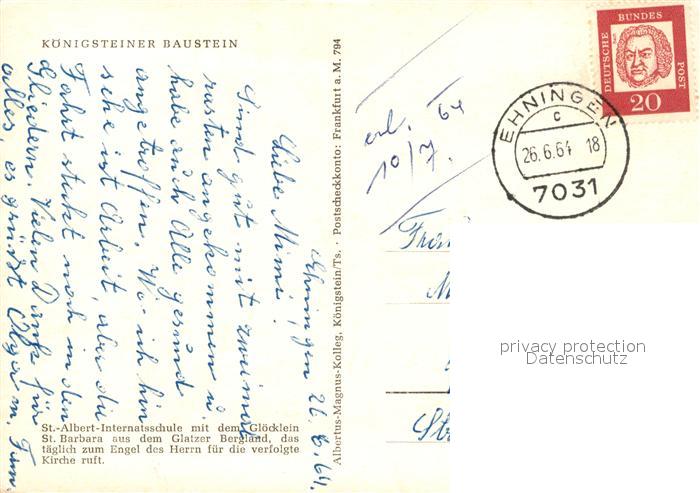 KÖNIGSTEINER BAUSTEIN
Ehningen 26.6.64.
Liebe Mimi!
Sind gut mit zweimal
rasten angekommen u.
habe auch Alle gesund
angetroffen. Wo ich hin
sehe ist Arbeit, aber die
Fahrt steckt noch in den
Gliedern. Vielen Dank für
alles, es grüsst Olga m. Fam
St.-Albert-Internatsschule mit dem Glöcklein
St. Barbara aus dem Glatzer Bergland, das
täglich zum Engel des Herrn für die verfolgte
Kirche ruft.
Albertus-Magnus-Kolleg, Königstein/Ts. · Postscheckkonto: Frankfurt a. M. 794
erl. 64
10/7.
DEUTSCHE BUNDES POST
20
EHNINGEN
c
26.6.64 18
7031
Str
privacy protection
Datenschutz